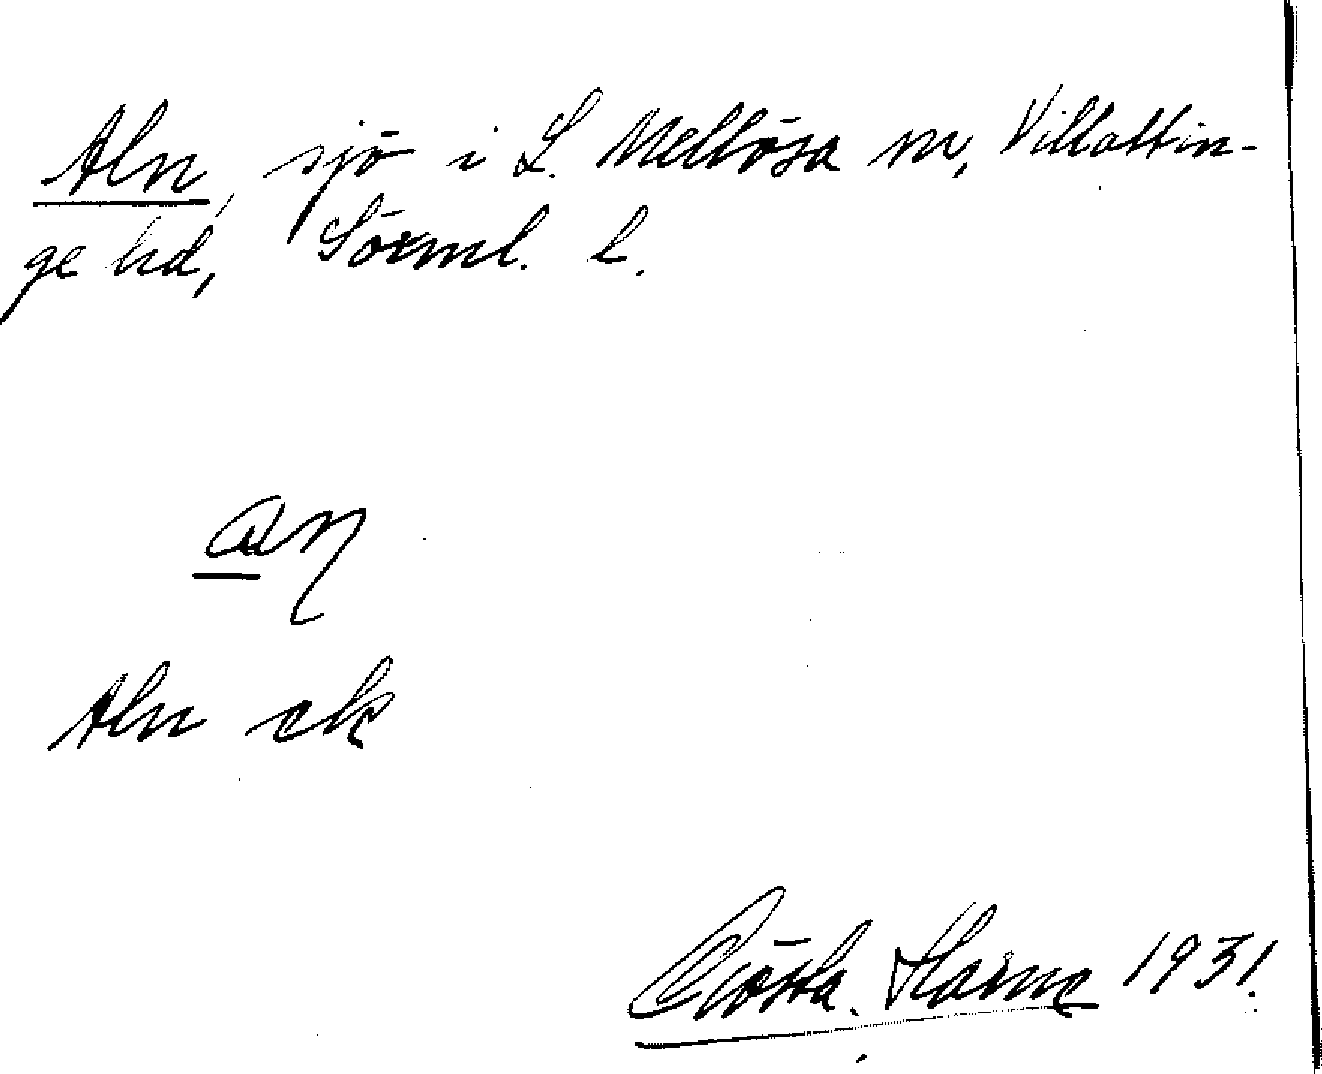 Aln, sjö i L. Mellösa sn, Villåttin-
ge hd, Sörml. l.
Aln ek
Gösta 1931.